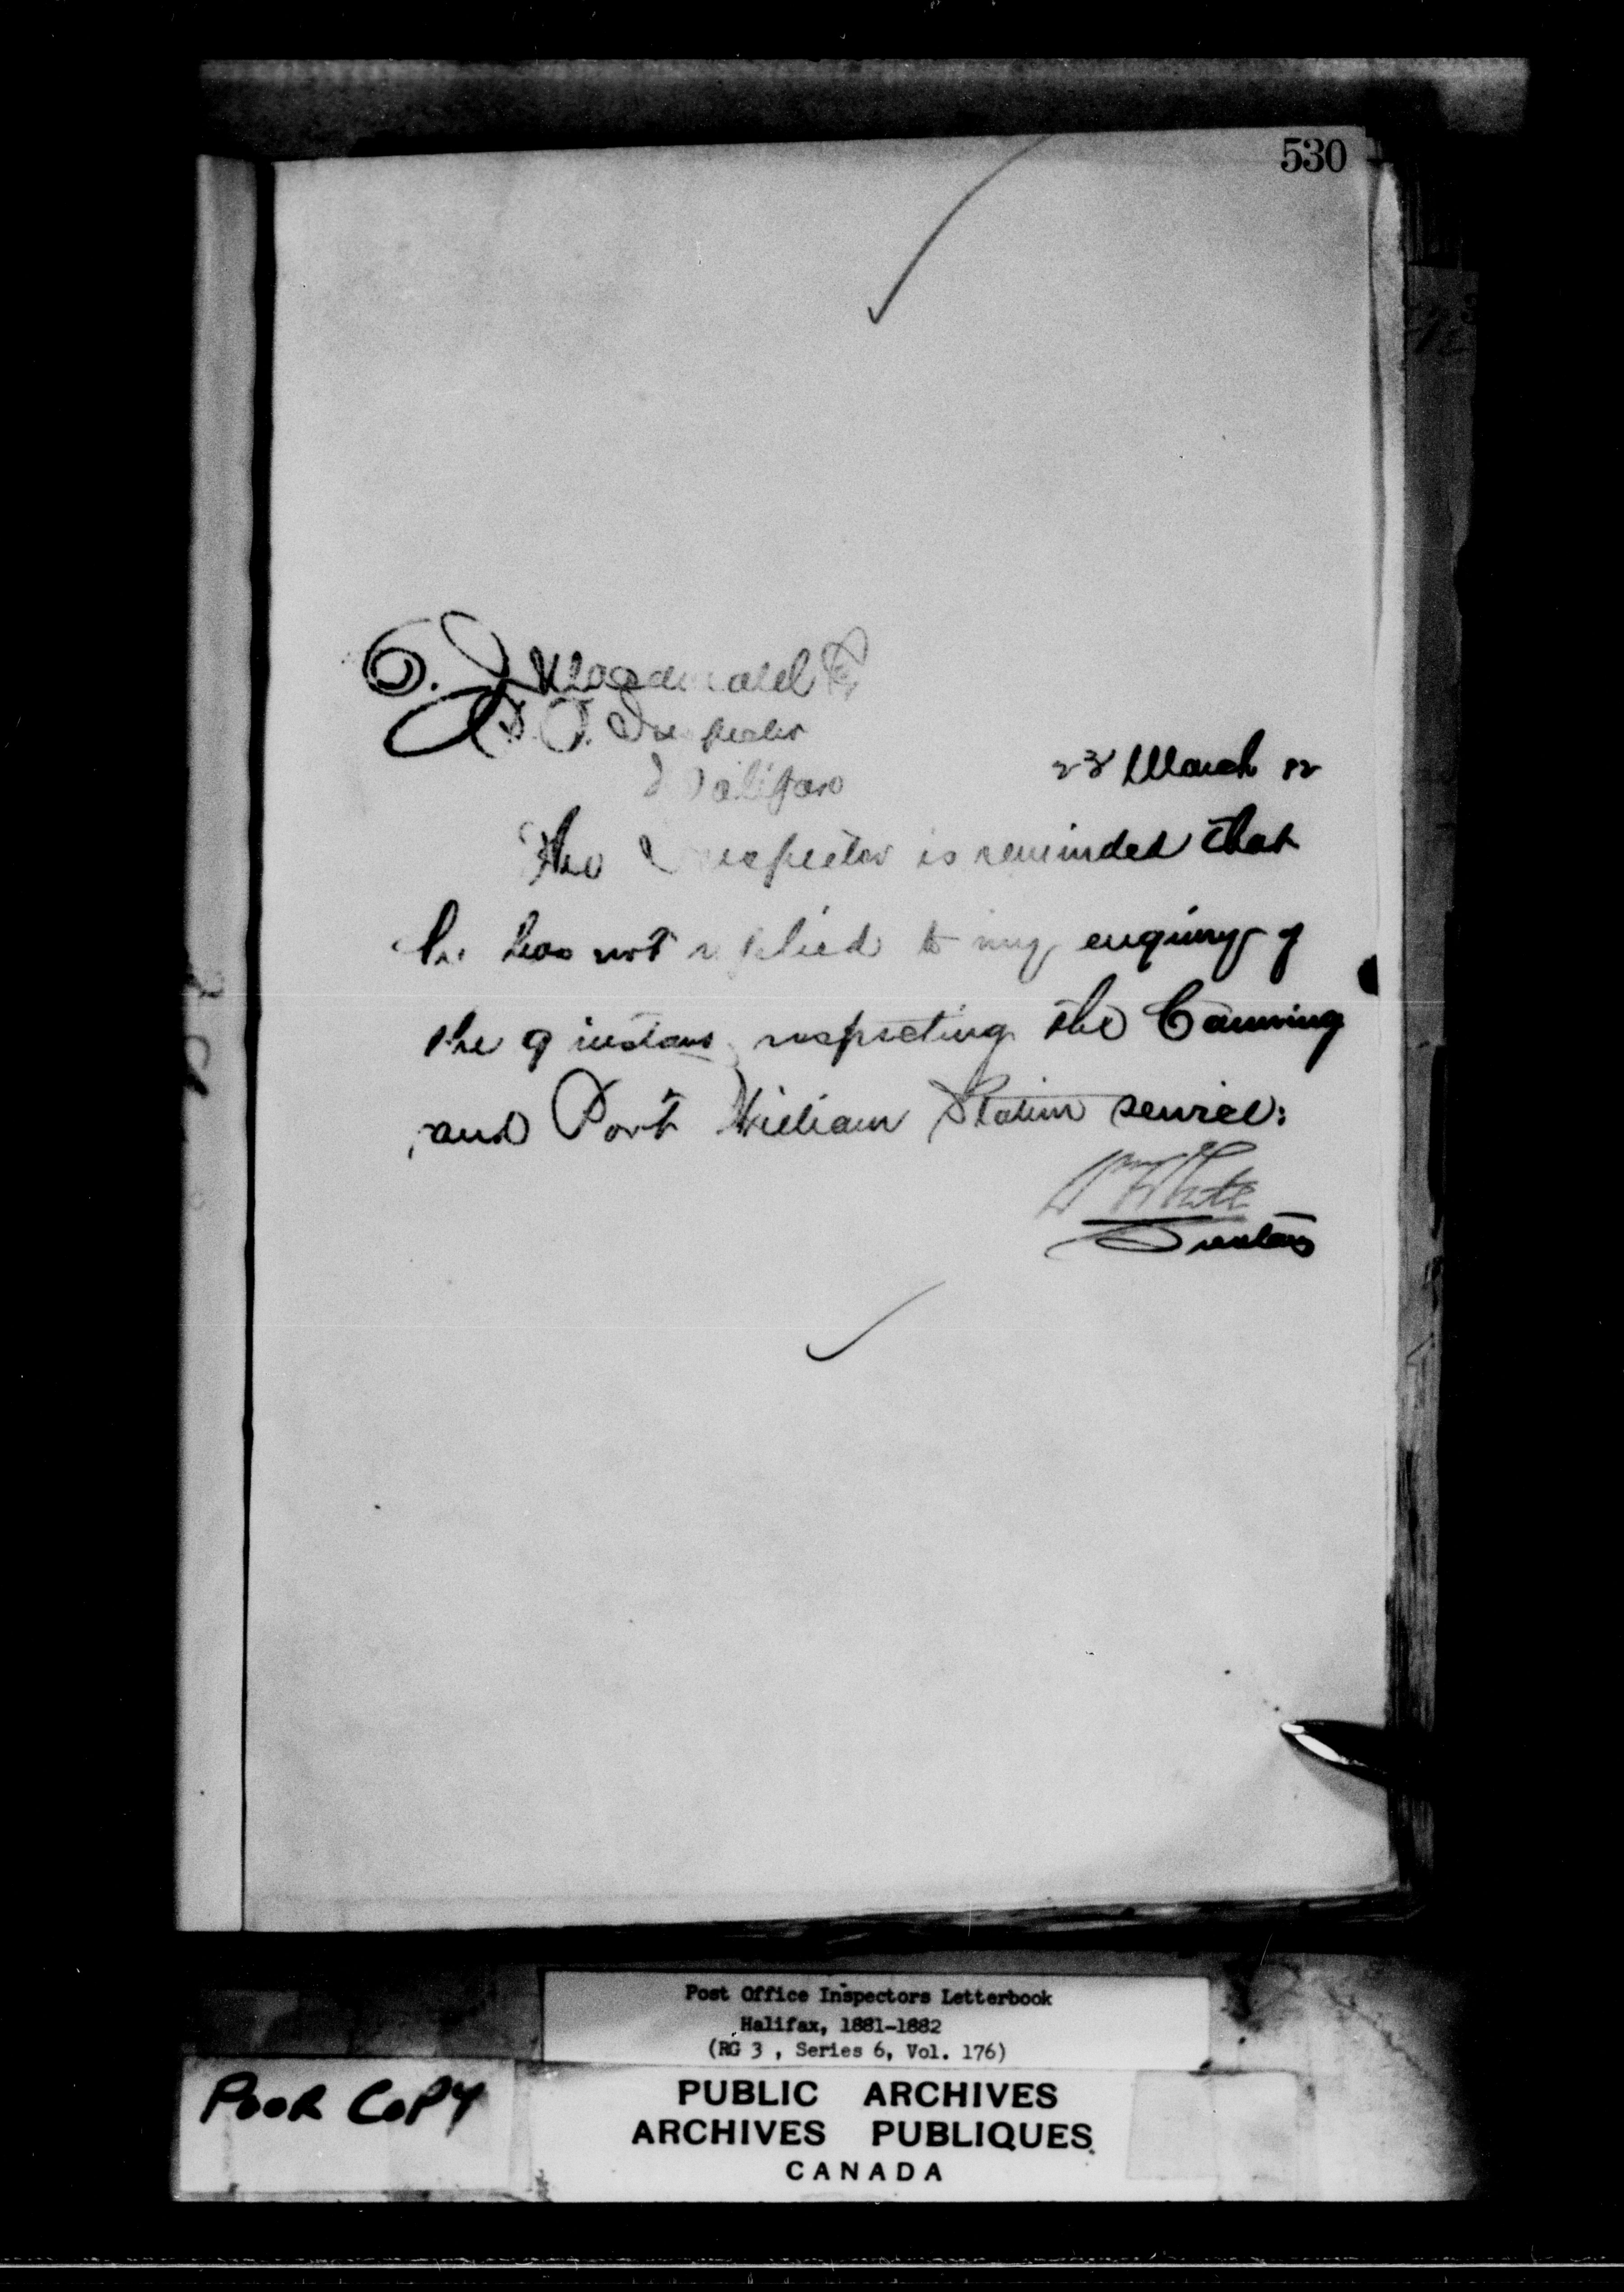 530
P. O. Inspector
Halifax
23 March 82
The Inspector is reminded that
he has not replied to my enquiry of
the 9 instant respecting the Canning
and Port William Station service.
Wm White
Secretary
Post Office Inspectors Letterbook
Halifax, 1881-1882
(RG 3 , Series 6, Vol. 176)
POOR COPY
PUBLIC ARCHIVES
ARCHIVES PUBLIQUES
CANADA